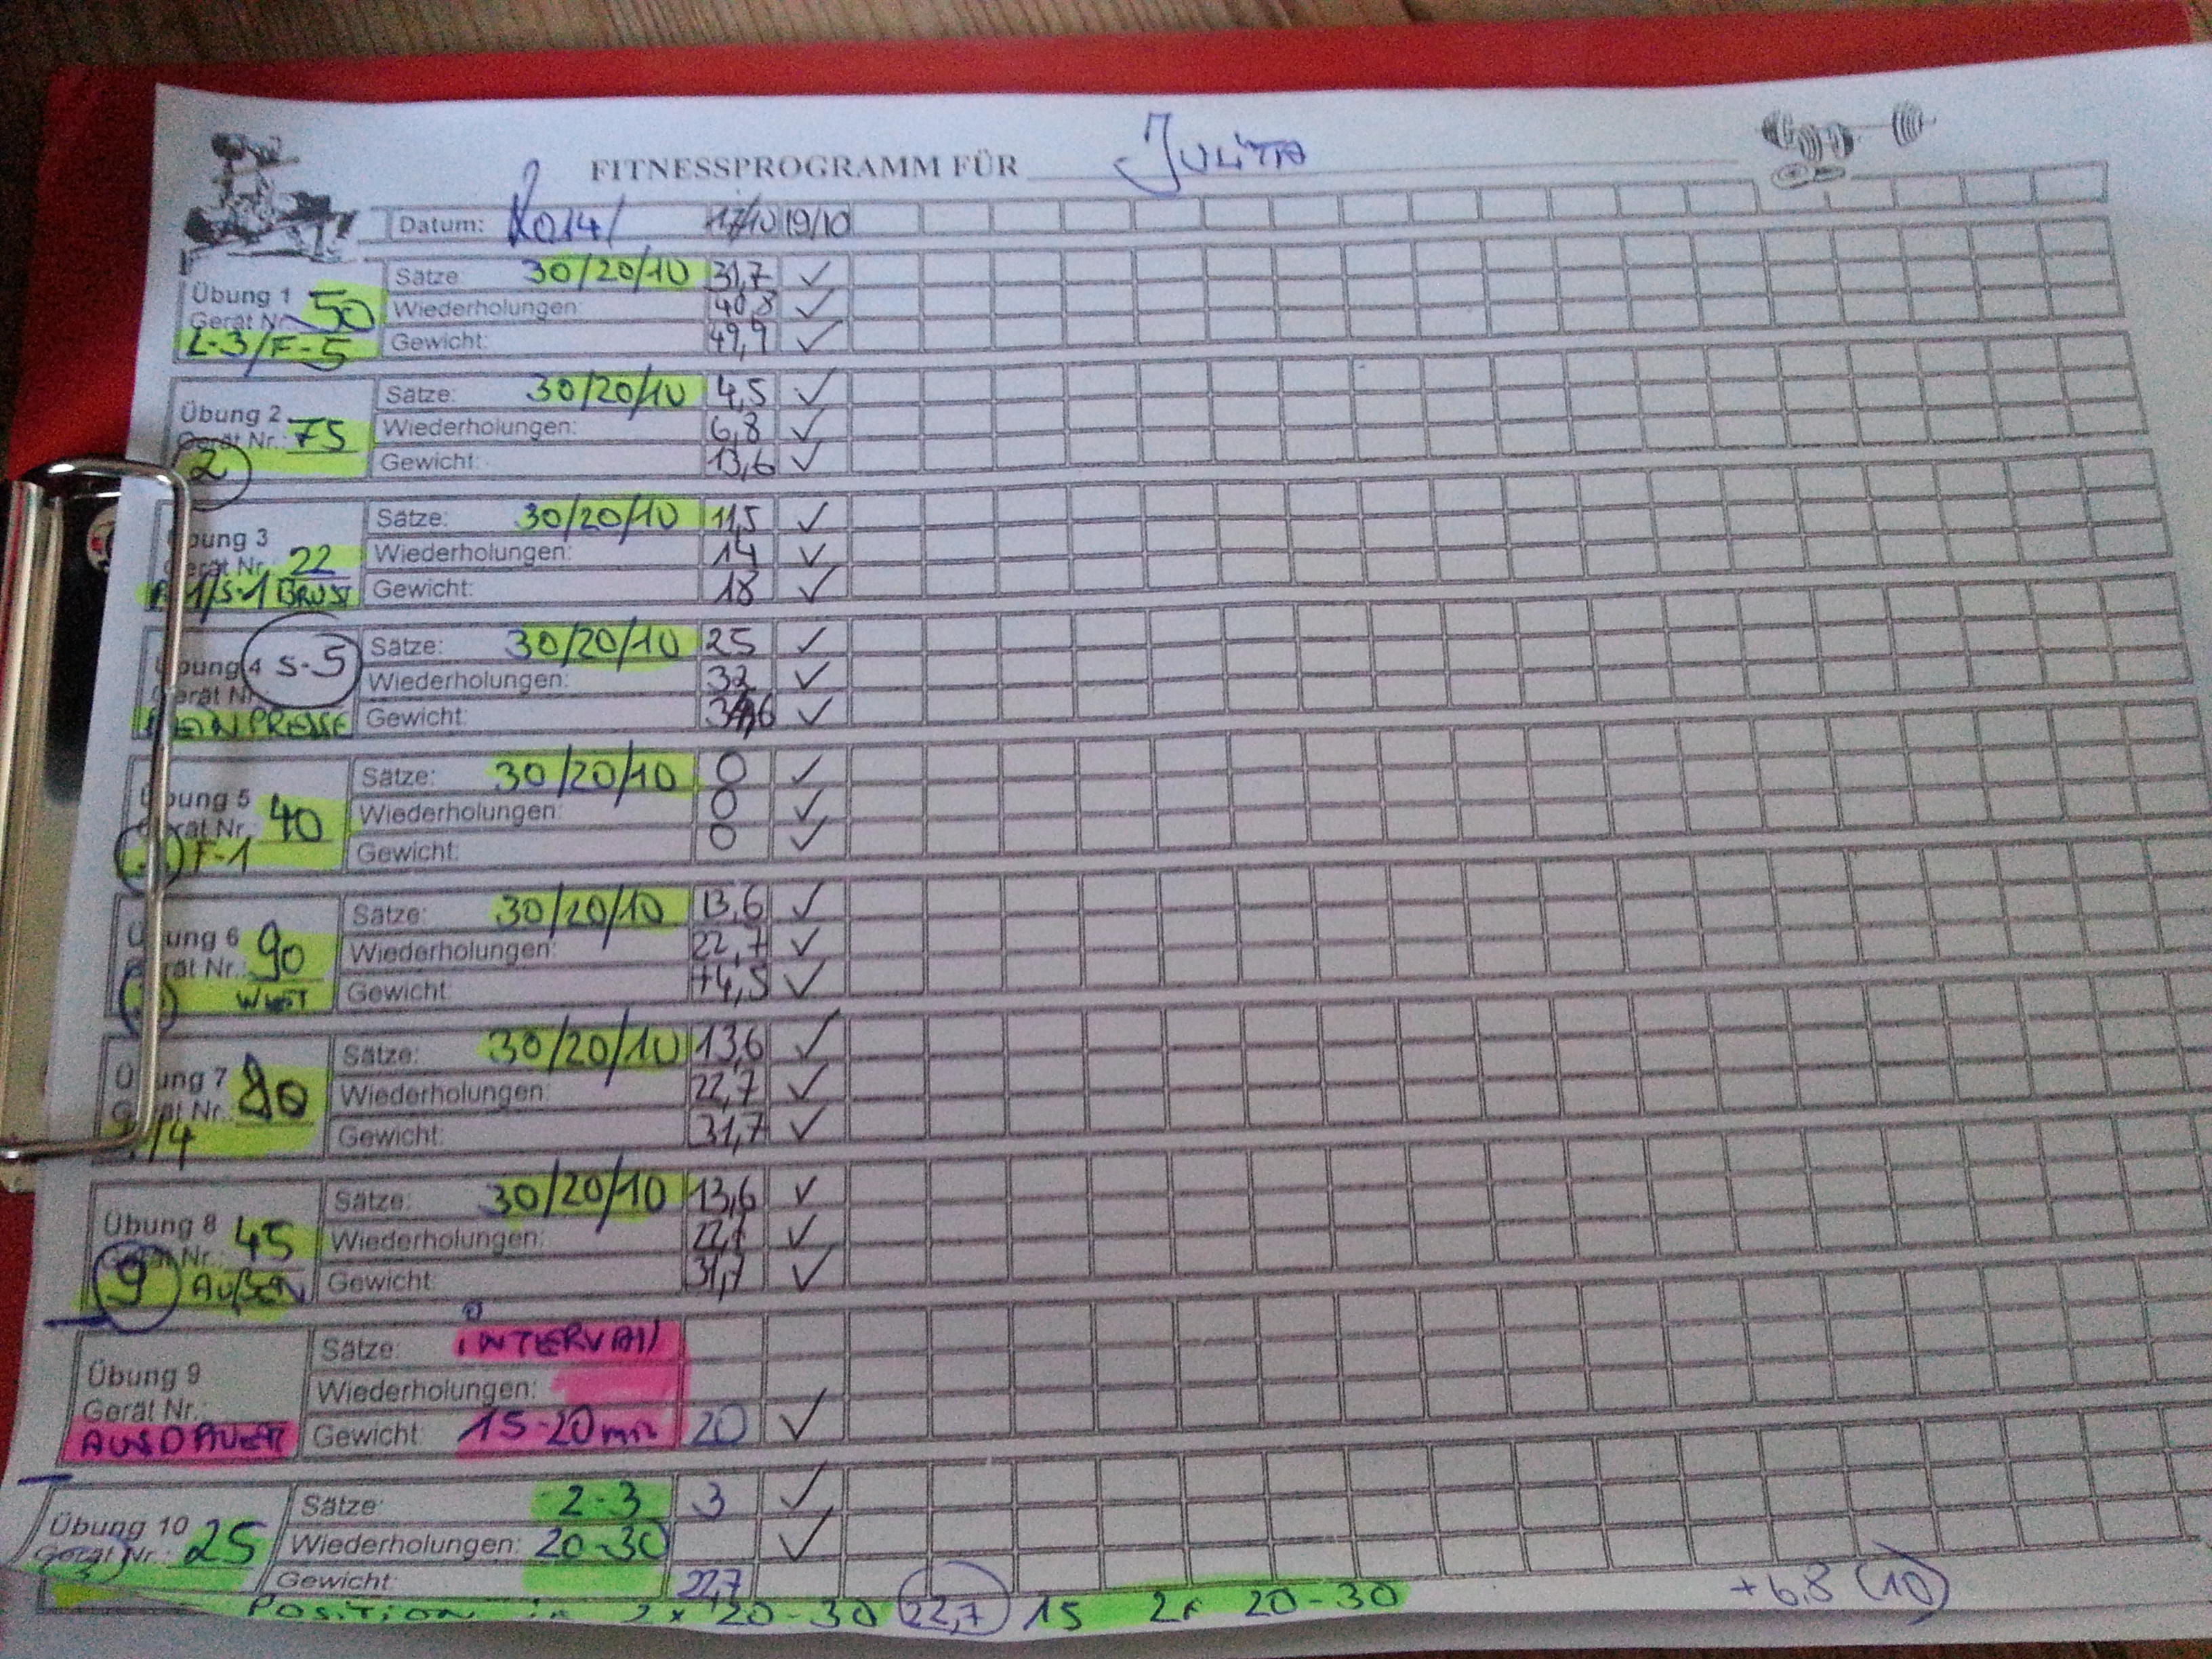 FITNESSPROGRAMM FÜR JULITTA
Datum: 2014/ 17/10 19/10
Sätze: 30/20/10 31,7 ✓
Übung 1
Wiederholungen: 40,8 ✓
Gerät Nr. 50
Gewicht: 49,9 ✓
L-3/F-5
Sätze: 30/20/10 4,5 ✓
Übung 2
Wiederholungen: 6,8 ✓
Gerät Nr.: 75
Gewicht: 13,6 ✓
2
Sätze: 30/20/10 11,5 ✓
Übung 3
Wiederholungen: 14 ✓
Gerät Nr. 22
Gewicht: 18 ✓
1/S-1 BRUST
Sätze: 30/20/10 25 ✓
Übung 4 S-5
Wiederholungen: 32 ✓
Gerät Nr.:
Gewicht: ✓
BEINPRESSE
Sätze: 30/20/10 0 ✓
Übung 5
Wiederholungen: 0 ✓
Gerät Nr.: 40
Gewicht: 0 ✓
F-1
Sätze: 30/20/10 13,6 ✓
Übung 6
Wiederholungen: 22,7 ✓
Gerät Nr.: 90
Gewicht: +4,5 ✓
Sätze: 30/20/10 13,6 ✓
Übung 7
Wiederholungen: 22,7 ✓
Gerät Nr.: 80
Gewicht: 31,7 ✓
/4
Sätze: 30/20/10 13,6 ✓
Übung 8
Wiederholungen: 22,7 ✓
Gerät Nr.: 45
Gewicht: 31,7 ✓
9 AUßEN
Sätze: INTERVALL
Übung 9
Wiederholungen:
Gerät Nr.:
Gewicht: 15-20 min 20 ✓
AUSDAUER
Sätze: 2-3 3 ✓
Übung 10
Wiederholungen: 20-30 ✓
Gerät Nr.: 25
Gewicht: 22,7
POSITION 2x 20-30 22,7 15 2x 20-30 +6,8 (10)